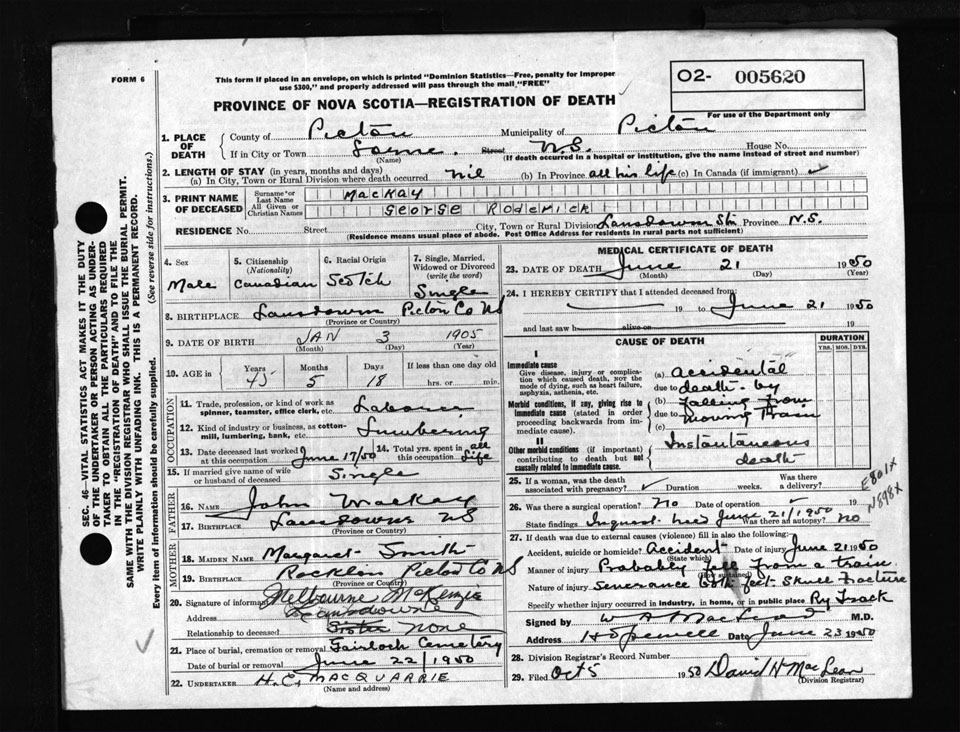 FORM 6
This form if placed in an envelope, on which is printed "Dominion Statistics—Free, penalty for improper
use $300," and properly addressed will pass through the mail "FREE"
O2- 005620
For use of the Department only
PROVINCE OF NOVA SCOTIA—REGISTRATION OF DEATH
SEC. 46—VITAL STATISTICS ACT MAKES IT THE DUTY
OF THE UNDERTAKER OR PERSON ACTING AS UNDER-
TAKER TO OBTAIN ALL THE PARTICULARS REQUIRED
IN THE "REGISTRATION OF DEATH" AND TO FILE THE
SAME WITH THE DIVISION REGISTRAR WHO SHALL ISSUE THE BURIAL PERMIT.
WRITE PLAINLY WITH UNFADING INK. THIS IS A PERMANENT RECORD.
Every item of information should be carefully supplied. (See reverse side for instructions.)
1. PLACE OF DEATH
County of Pictou Municipality of Pictou
If in City or Town Lorne. Street N.S. House No.
(Name) (If death occurred in a hospital or institution, give the name instead of street and number)
2. LENGTH OF STAY (in years, months and days)
(a) In City, Town or Rural Division where death occurred nil (b) In Province all his life (c) In Canada (if immigrant)
3. PRINT NAME OF DECEASED
Surname or Last Name MacKay
All Given or Christian Names George Roderick
RESIDENCE No. Street City, Town or Rural Division Lansdowne Stn Province N.S.
(Residence means usual place of abode. Post Office Address for residents in rural parts not sufficient)
4. Sex Male
5. Citizenship (Nationality) Canadian
6. Racial Origin Scotch
7. Single, Married, Widowed or Divorced (write the word) Single
8. BIRTHPLACE Lansdowne Pictou Co NS
(Province or Country)
9. DATE OF BIRTH JAN 3 1905
(Month) (Day) (Year)
10. AGE in Years 45 Months 5 Days 18 If less than one day old hrs. or min.
OCCUPATION
11. Trade, profession, or kind of work as spinner, teamster, office clerk, etc. Laborer
12. Kind of industry or business, as cotton-mill, lumbering, bank, etc. Lumbering
13. Date deceased last worked at this occupation June 17/50 14. Total yrs. spent in this occupation all Life
15. If married give name of wife or husband of deceased Single
FATHER
16. NAME John MacKay
17. BIRTHPLACE Lansdowne NS
MOTHER
18. MAIDEN NAME Margaret Smith
19. BIRTHPLACE Rocklin Pictou Co NS
(Province or Country)
20. Signature of informant Melbourne McKenzie
Address Lansdowne
Relationship to deceased Sister None
21. Place of burial, cremation or removal Gairloch Cemetery
Date of burial or removal June 22/1950
22. UNDERTAKER H.E. MACQUARRIE
(Name and address)
MEDICAL CERTIFICATE OF DEATH
23. DATE OF DEATH June 21 1950
(Month) (Day) (Year)
24. I HEREBY CERTIFY that I attended deceased from:
19 to June 21 1950
and last saw h alive on 19
CAUSE OF DEATH
DURATION
YRS. MOS. DYS.
I
Immediate cause
Give disease, injury or complication which caused death, NOT the mode of dying, such as heart failure, asphyxia, asthenia, etc.
Morbid conditions, if any, giving rise to immediate cause (stated in order proceeding backwards from immediate cause).
II
Other morbid conditions (if important) contributing to death but not causally related to immediate cause.
(a) Accidental
due to death by
(b) falling from
due to moving train
(c)
Instantaneous
death
25. If a woman, was the death associated with pregnancy? Duration weeks. Was there a delivery?
E801X
N898X
26. Was there a surgical operation? No Date of operation 19
State findings Inquest held June 21/1950 Was there an autopsy? no
27. If death was due to external causes (violence) fill in also the following:
Accident, suicide or homicide? Accident Date of injury June 21 1950
(State which)
Manner of injury Probably fell from a train
(How sustained)
Nature of injury Severance both feet Skull Fracture
Specify whether injury occurred in industry, in home, or in public place Ry Track
Signed by W A MacLeod M.D.
Address Hopewell Date June 23 1950
28. Division Registrar's Record Number
29. Filed Oct 5 1950 David H MacLean
(Division Registrar)